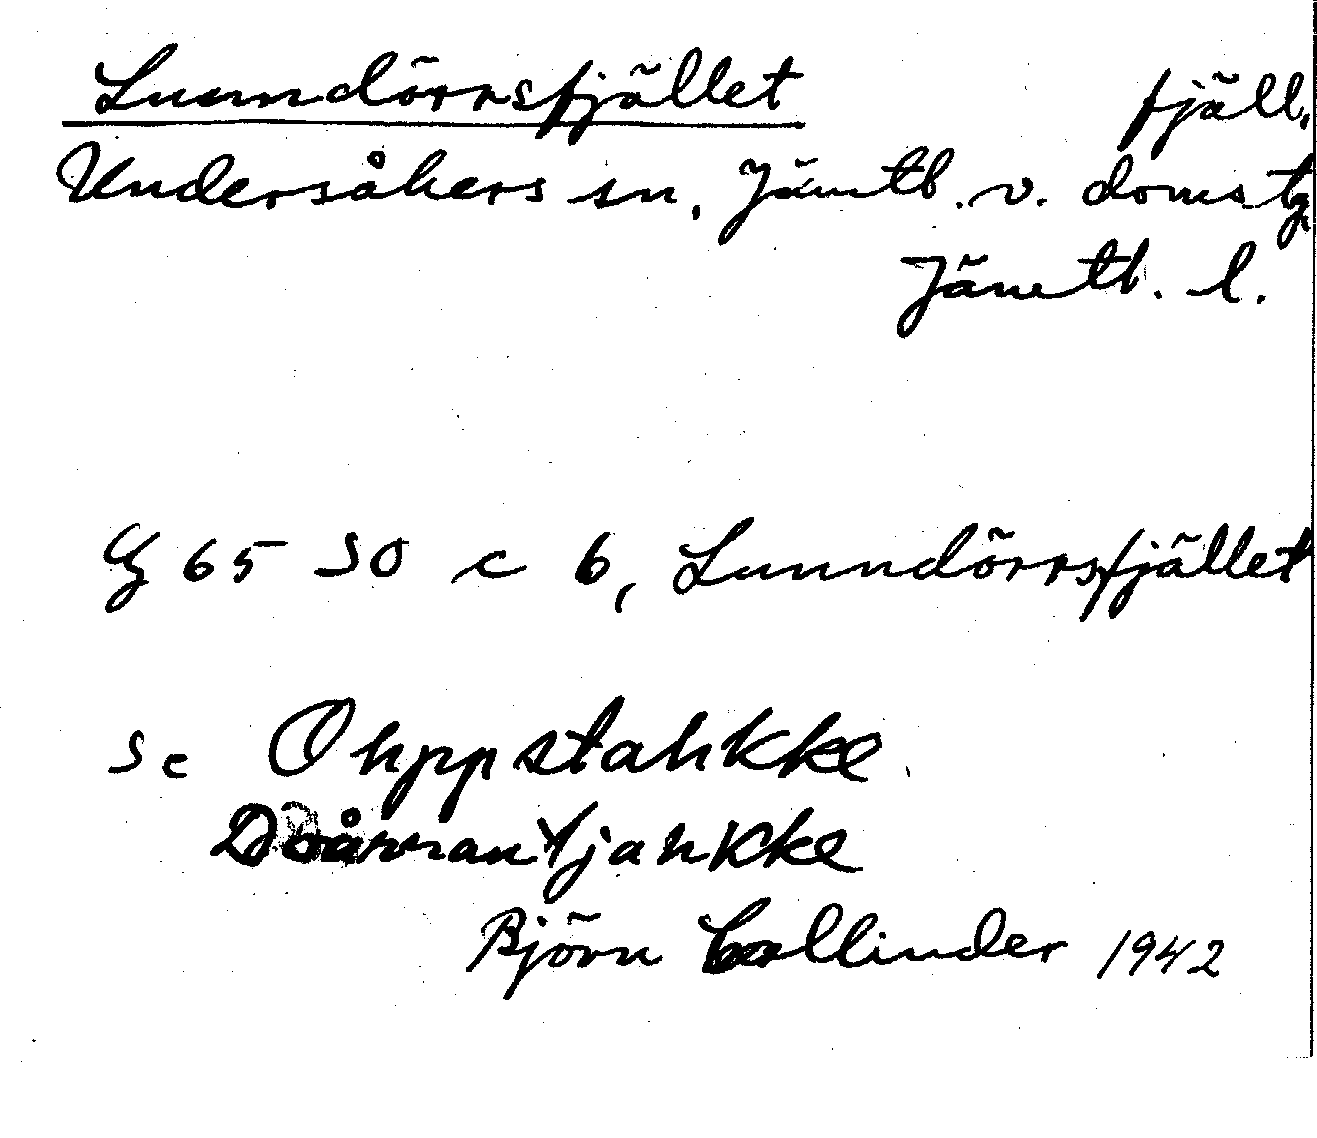 Lunndörrsfjället fjäll.
Undersåkers sn. Jämtl. v. doms.tg.
Jämtl. l.
G 65 SO c 6, Lunndörrsfjället
Se Ohppstahkke
Doårrantjahkke
Björn Collinder 1942